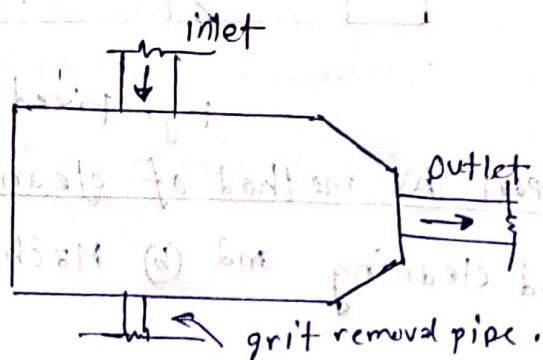 inlet
outlet
grit removal pipe.